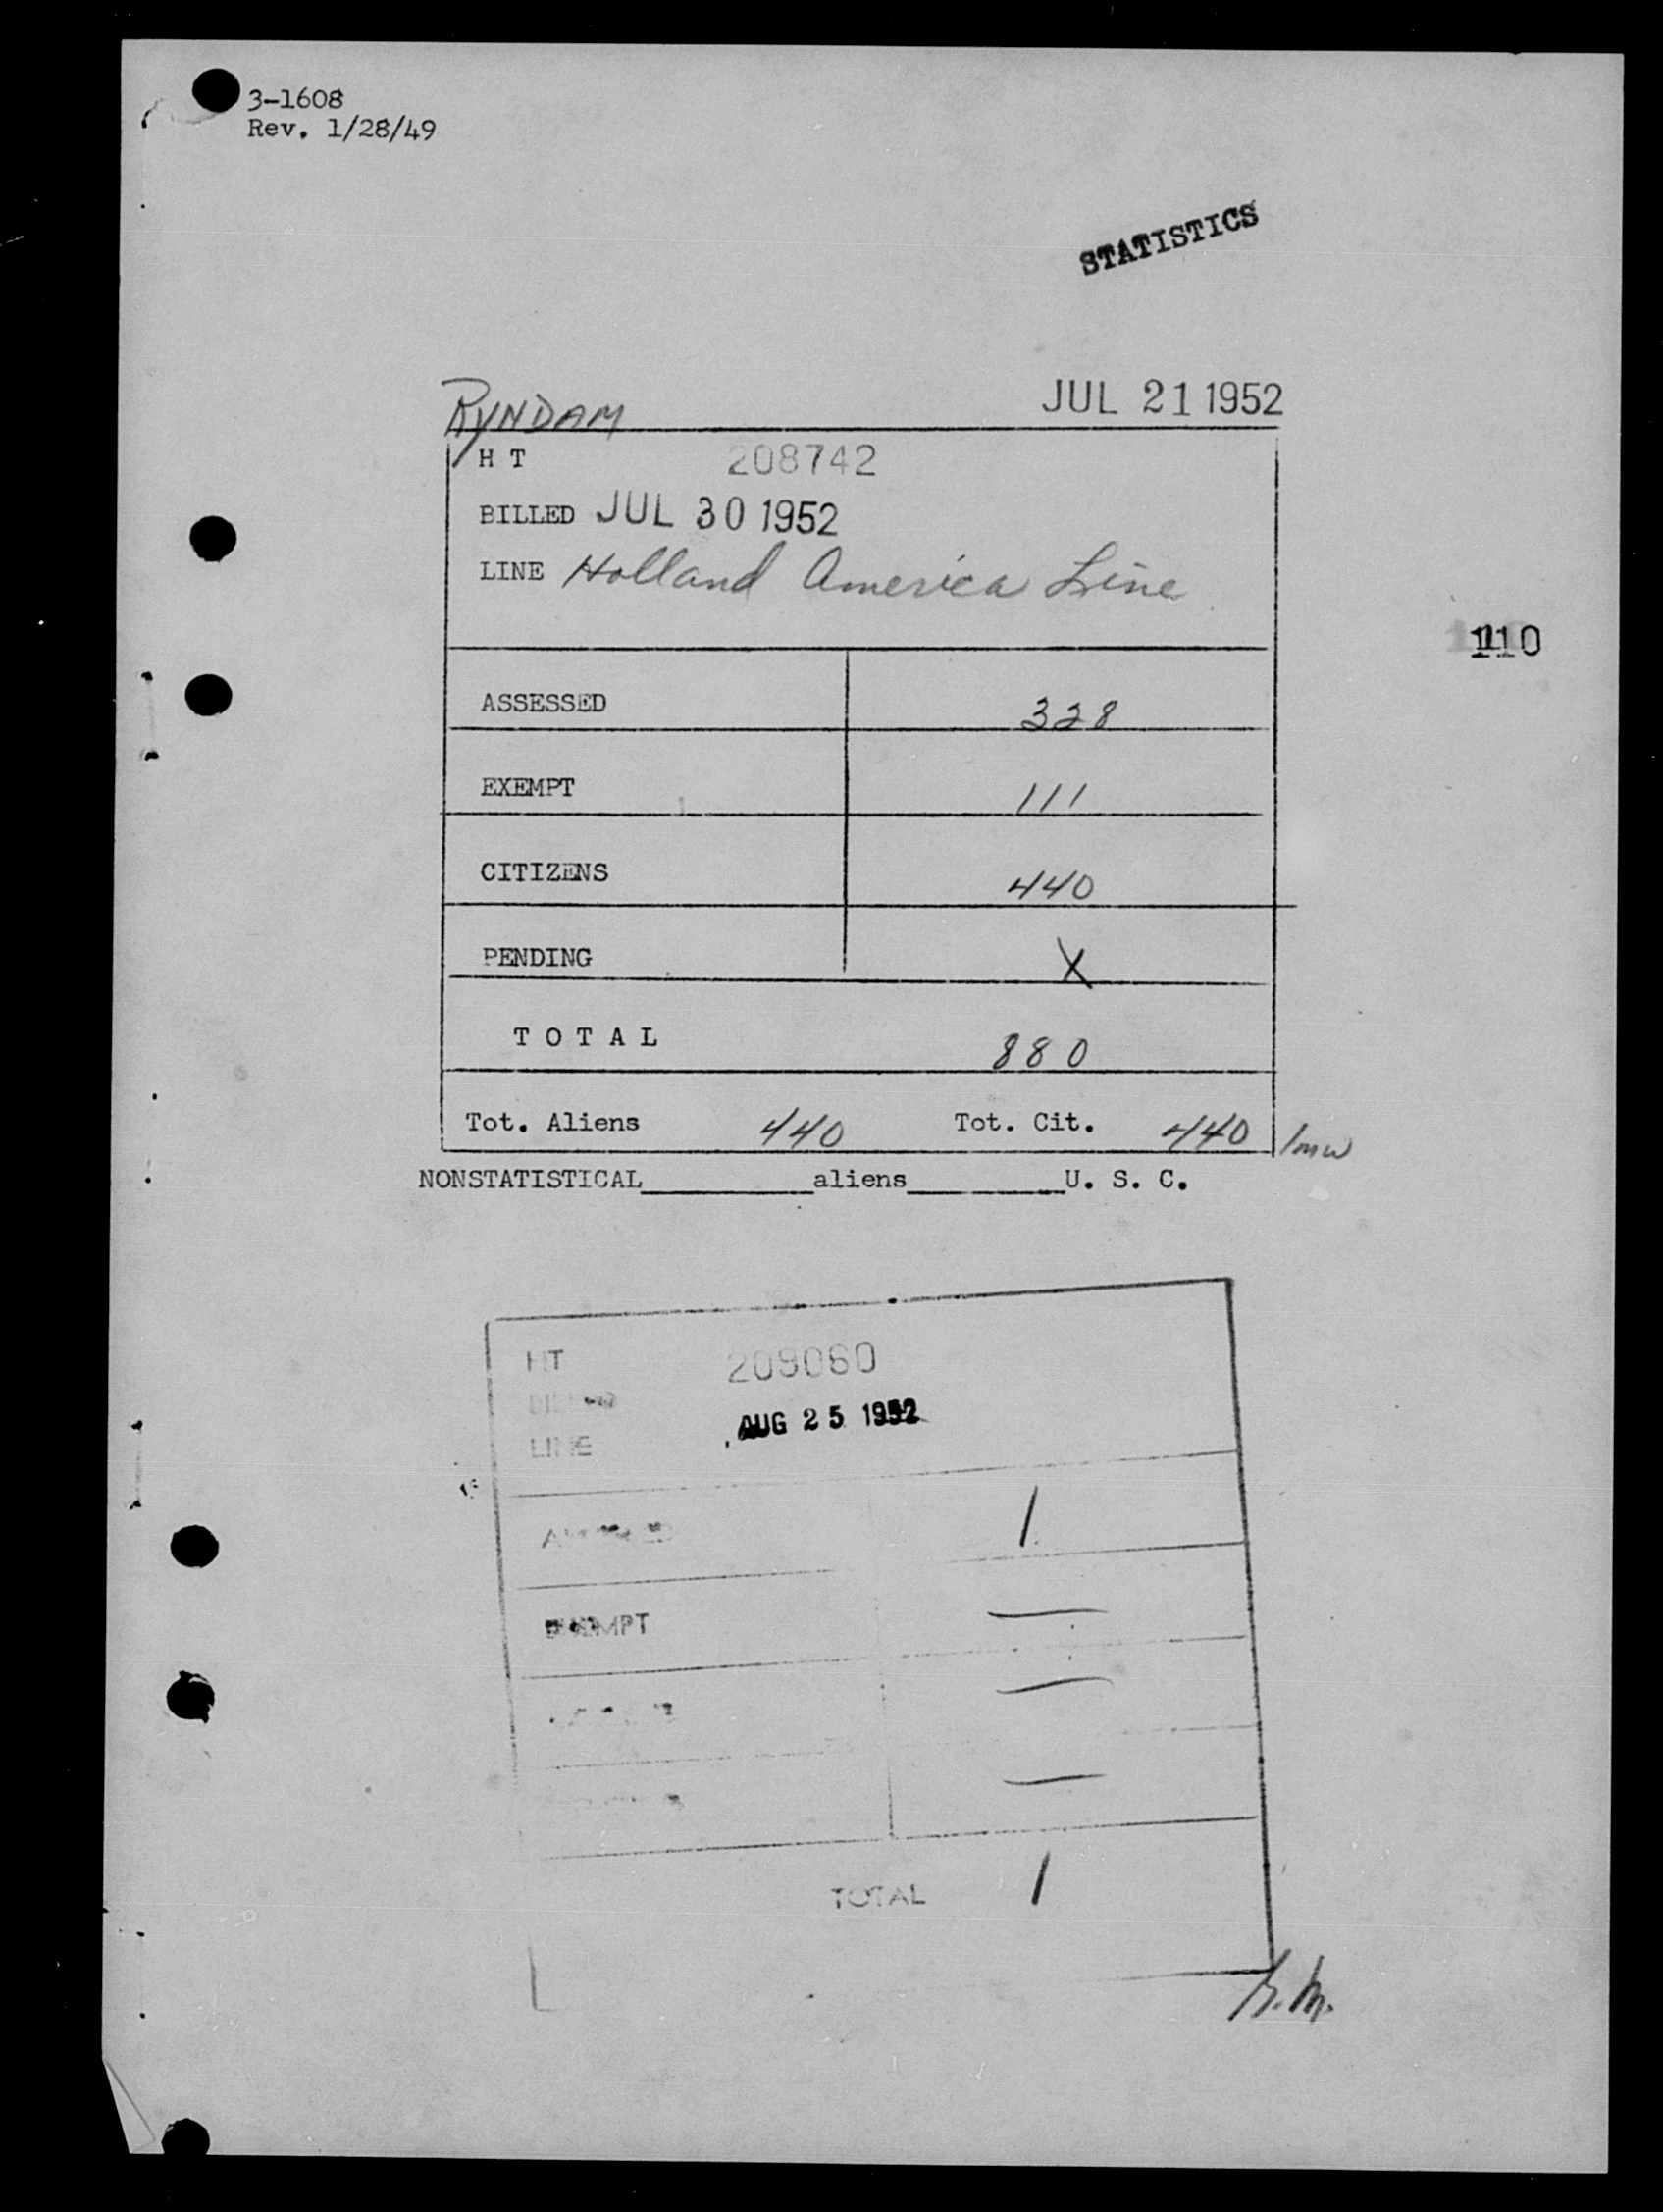 3-1608
Rev. 1/28/49
STATISTICS
RYNDAM JUL 21 1952
H T 208742
BILLED JUL 30 1952
LINE Holland America Line
110
ASSESSED 328
EXEMPT 111
CITIZENS 440
PENDING X
T O T A L 880
Tot. Aliens 440 Tot. Cit. 440 /mw
NONSTATISTICAL aliens U. S. C.
HT 209060
AUG 25 1952
LINE
1
EXEMPT —
—
—
TOTAL 1